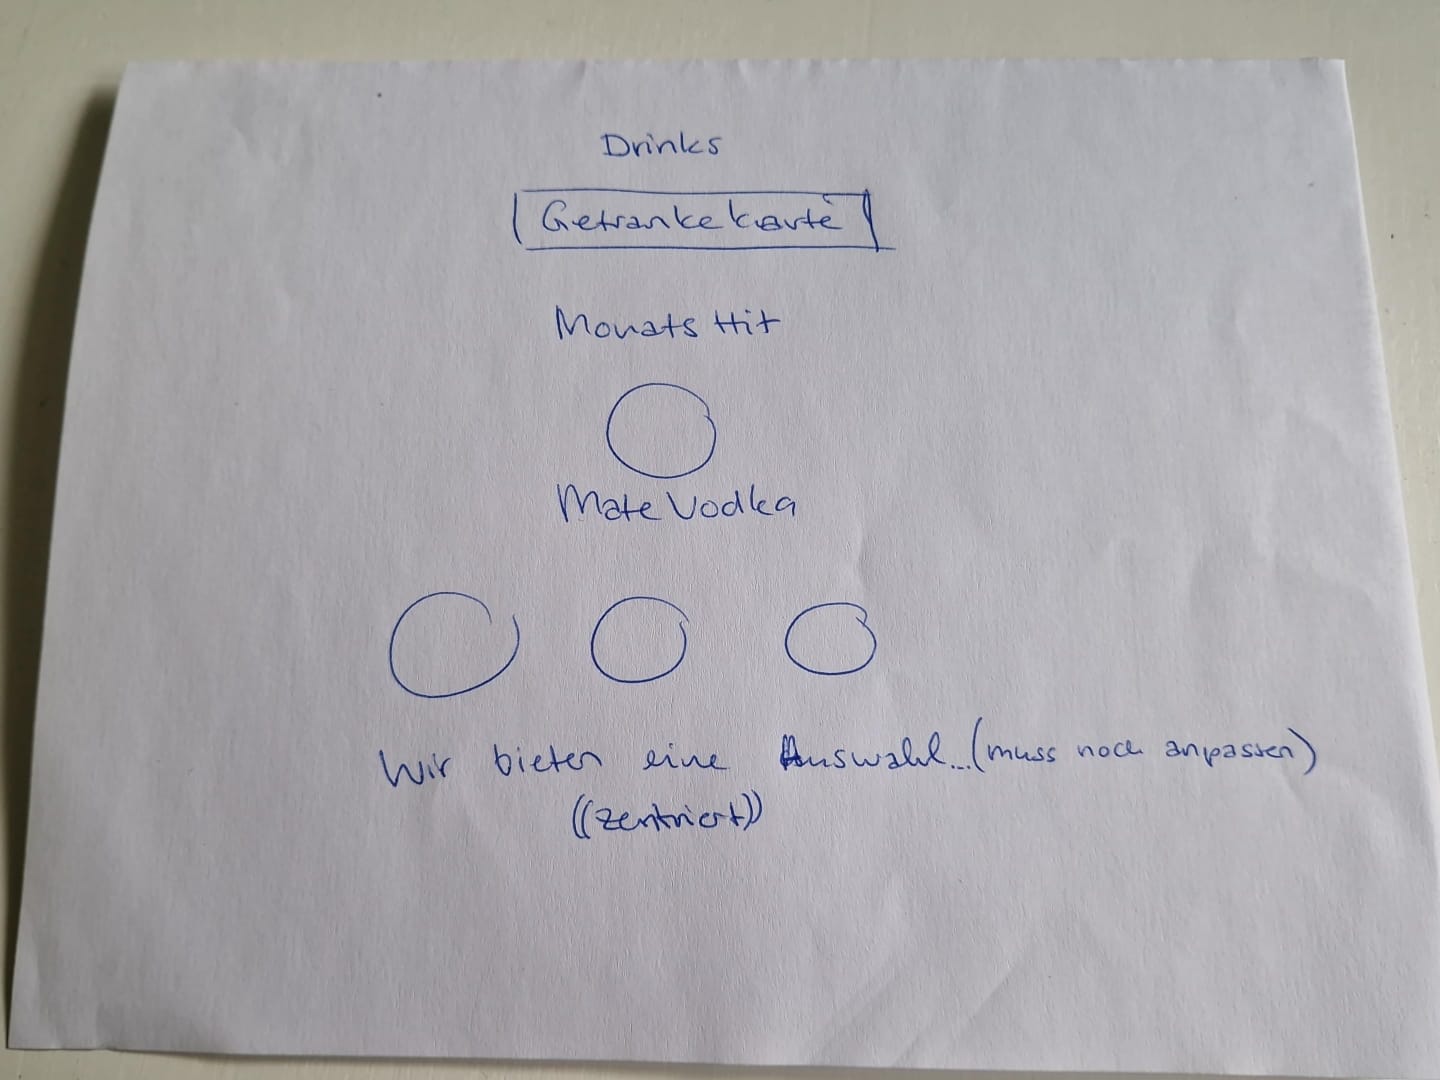 Drinks
Getrankekarte
Monats Hit
Mate Vodka
Wir bieten eine Auswahl... (muss noch anpassen)
((zentriert))